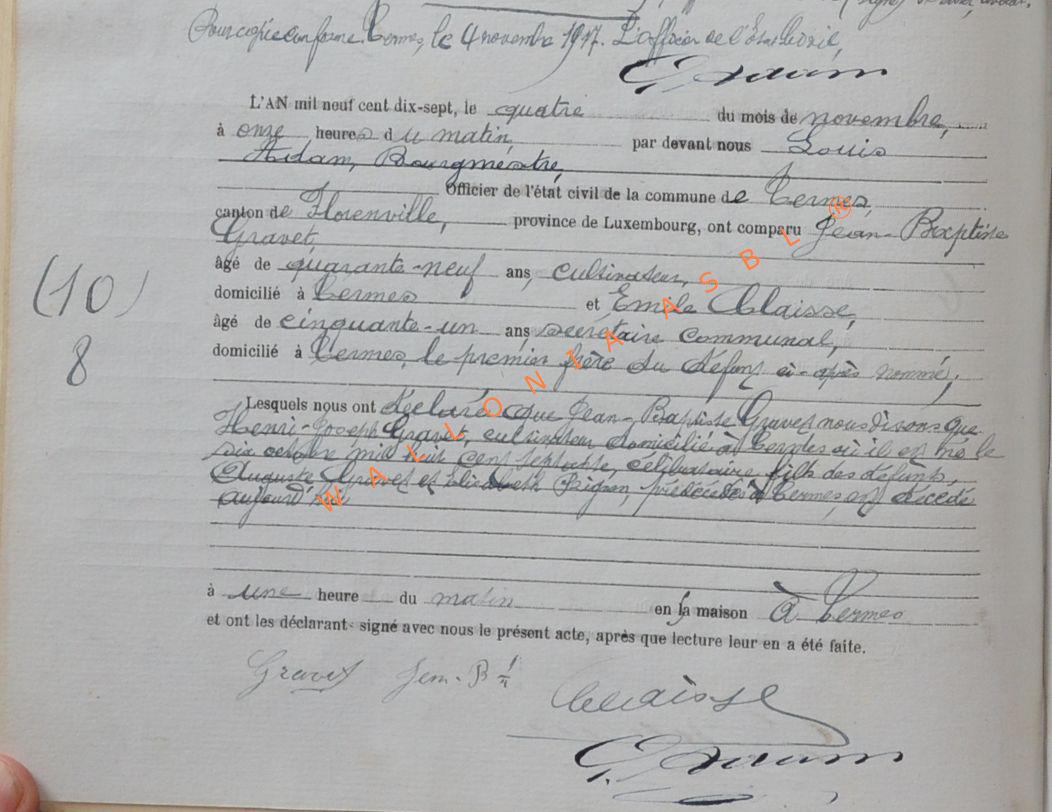 Pour copie conforme. Termes, le 4 novembre 1917. L'officier de l'Etat Civil,
L. Adam
L'AN mil neuf cent dix-sept, le quatre du mois de novembre,
à onze heures du matin, par devant nous Louis
Adam, Bourgmestre,
Officier de l'état civil de la commune de Termes,
canton de Florenville, province de Luxembourg, ont comparu Jean-Baptiste
Gravet,
âgé de quarante-neuf ans, cultivateur,
domicilié à Termes et Emile Claisse,
âgé de cinquante-un ans, secrétaire communal,
domicilié à Termes, le premier frère du défunt ci-après nommé,
(10)
8
Lesquels nous ont déclaré que Jean-Baptiste Gravet nous disons que
Henri-Joseph Gravet, cultivateur domicilié à Termes où il est né le
six octobre mil huit cent septante, célibataire, fils des défunts,
Auguste Gravet et Elisabeth Pignon, prédécédés à Termes, est décédé
aujourd'hui
à une heure du matin en la maison à Termes
et ont les déclarant signé avec nous le présent acte, après que lecture leur en a été faite.
Gravet Jean-Bte
Claisse
L. Adam
WALLONIA ASBL ®